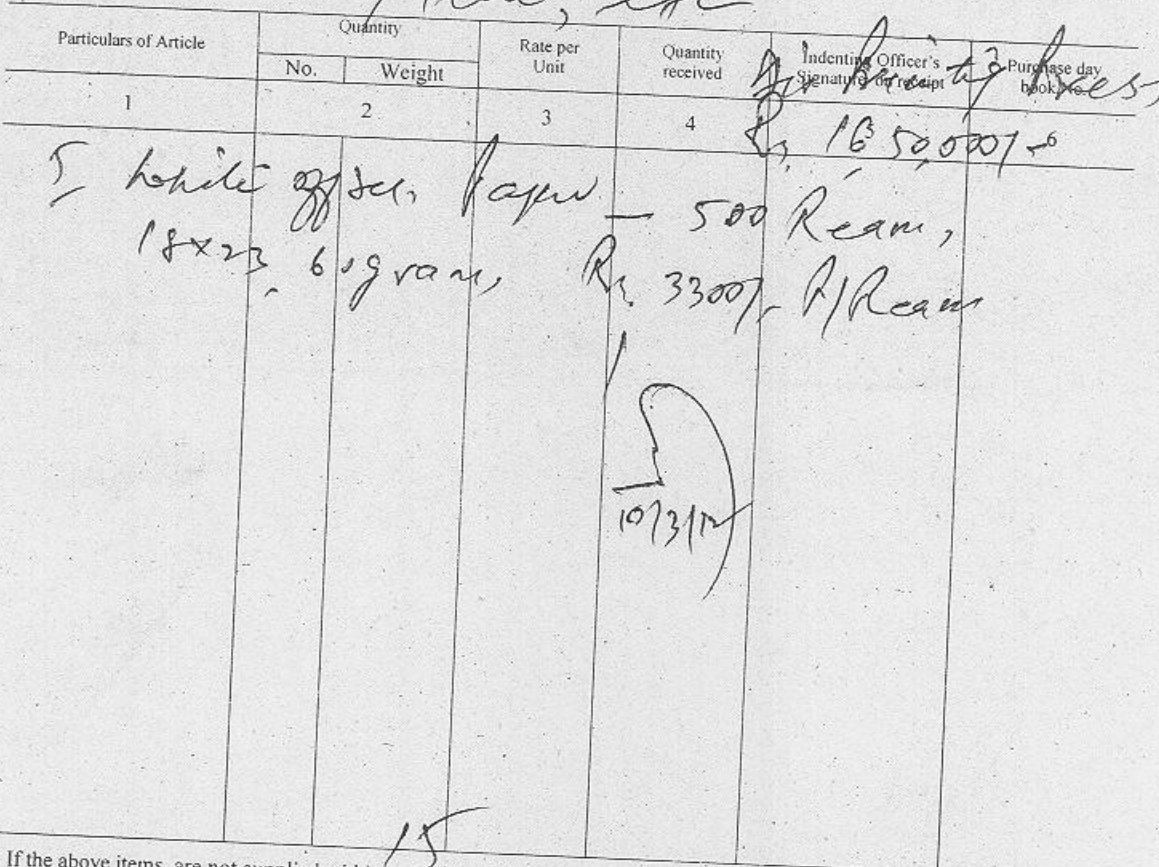 Particulars of Article
Quantity
No.
Weight
Rate per
Unit
Quantity
received
Indenting Officer's
Signature on receipt
Purchase day
book No.
1
2
3
4
Rs. 16,50,000/-
White offset Paper — 500 Ream,
18x23, 60 gram, Rs. 3300/- P/Ream
10/3/12
15
If the above items, are not supplied